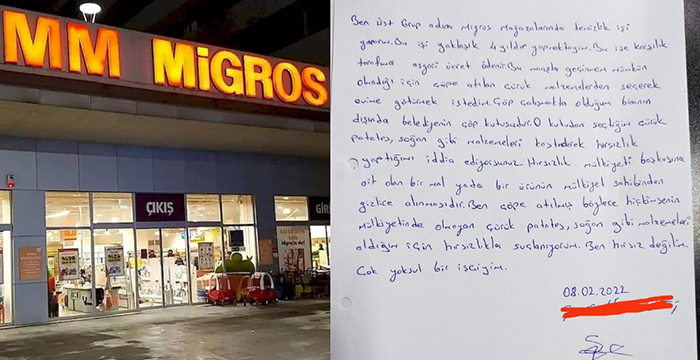 MM MiGROS
ÇIKIŞ
GİRİ
Ben Üst Grup adına Migros Mağazalarında temizlik işi
yapıyorum. Bu işi yaklaşık 4 yıldır yapmaktayım. Bu işe karşılık
tarafıma asgari ücret ödenir. Bu maaşla geçinmem mümkün
olmadığı için çöpe atılan çürük malzemelerden seçerek
evime götürmek istedim. Çöp çalışmakta olduğum binanın
dışında belediyenin çöp kutusudur. O kutudan seçtiğim çürük
patates, soğan gibi malzemeleri kastederek hırsızlık
yaptığımı iddia ediyorsunuz. Hırsızlık mülkiyeti başkasına
ait olan bir mal yada bir ürünün mülkiyet sahibinden
gizlice alınmasıdır. Ben çöpe atılmış böylece hiçkimsenin
mülkiyetinde olmayan çürük patates, soğan gibi malzemeleri
aldığım için hırsızlıkla suçlanıyorum. Ben hırsız değilim.
Çok yoksul bir işçiyim.
08.02.2022